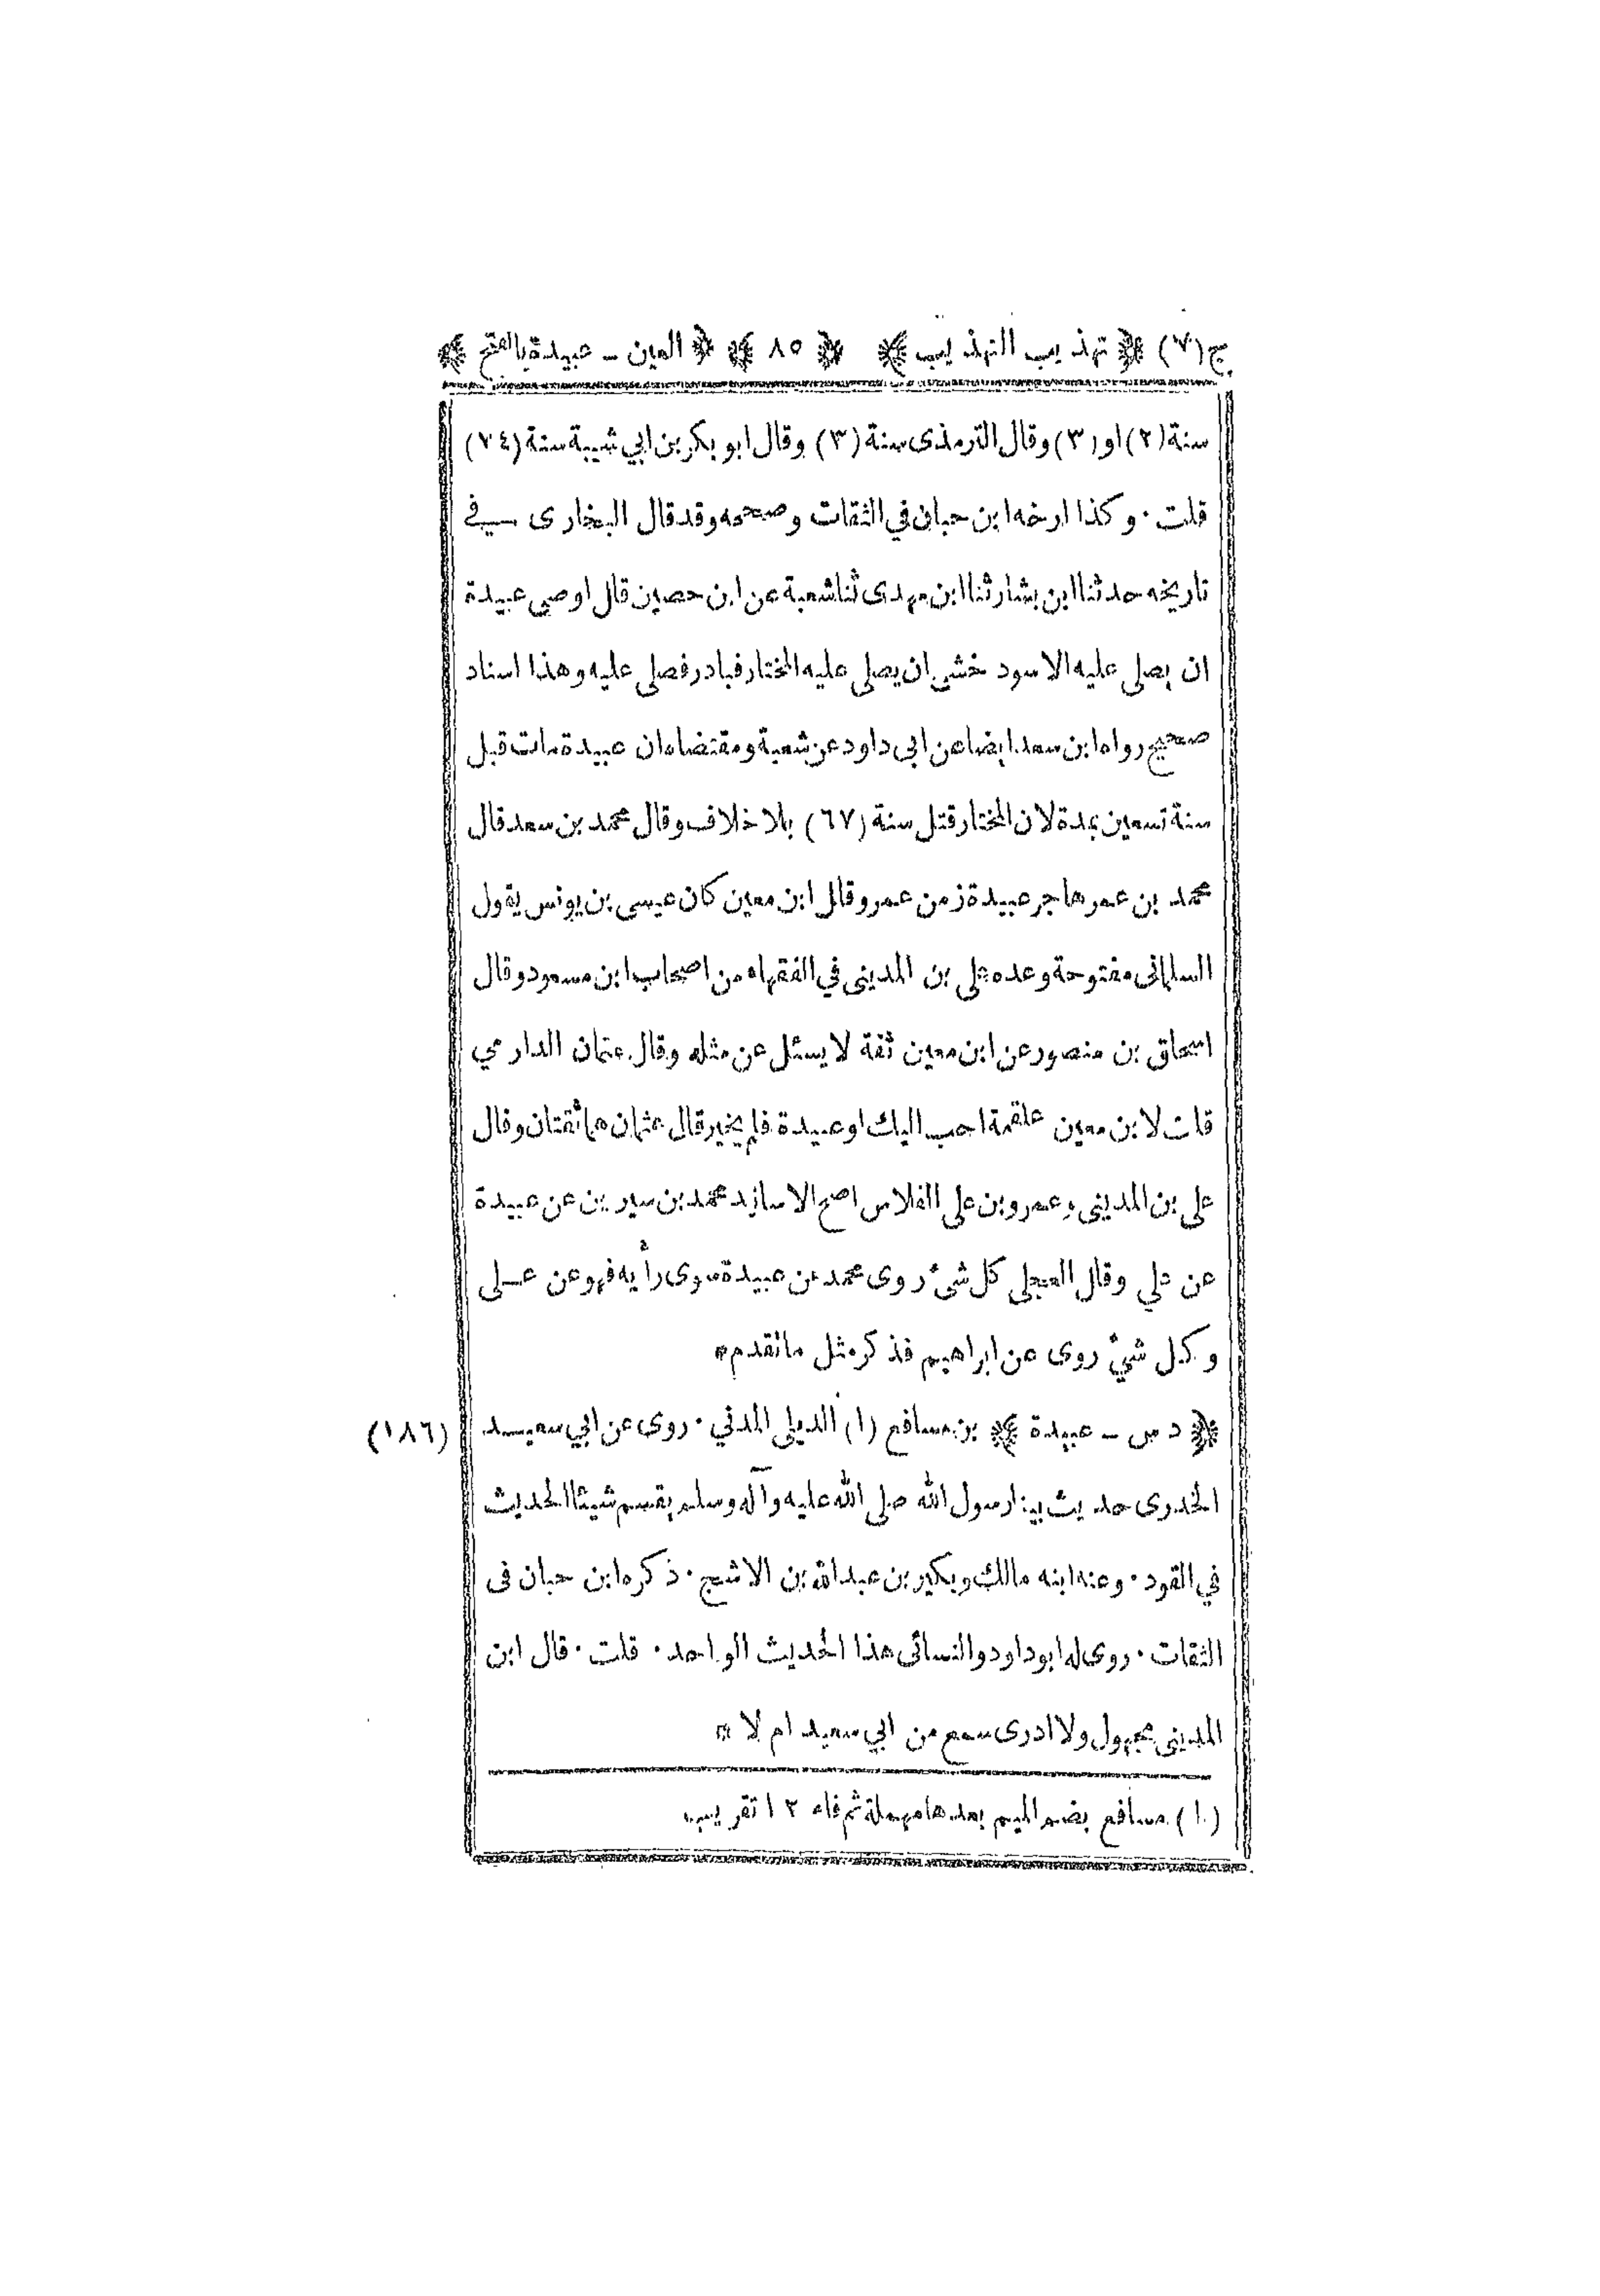 ج(٧) ﴿ تهذيب التهذيب ﴾ ﴿ ٨٥ ﴾ ﴿ العين - عبيدة بالفتح ﴾
سنة (٢) او (٣) وقال الترمذى سنة (٣) وقال ابو بكر بن ابي شيبة سنة (٧٤)
قلت · وكذا ارخه ابن حبان في الثقات وصححه وقد قال البخارى في
تاريخه حدثنا ابن بشار ثنا ابن مهدى ثنا شعبة عن ابن حصين قال اوصى عبيدة
ان يصلى عليه الاسود خشى ان يصلى عليه المختار فبادر فصلى عليه وهذا اسناد
صحيح رواه ابن سعد ايضا عن ابى داود عن شعبة ومقتضاه ان عبيدة مات قبل
سنة تسعين بمدة لان المختار قتل سنة (٦٧) بلا خلاف وقال محمد بن سعد قال
محمد بن عمر هاجر عبيدة زمن عمر وقال ابن معين كان عيسى بن يونس يقول
السلمانى مفتوحة وعده على بن المدينى في الفقهاء من اصحاب ابن مسعود وقال
اسحاق بن منصور عن ابن معين ثقة لا يسئل عن مثله وقال عثمان الدارمي
قلت لابن معين علقمة احب اليك او عبيدة فلم يخير قال عثمان هما ثقتان وقال
على بن المدينى وعمرو بن على الفلاس اصح الاسانيد محمد بن سيرين عن عبيدة
عن علي وقال العجلى كل شئ روى محمد عن عبيدة سوى رأيه فهو عن على
وكل شيْ روى عن ابراهيم فذكر مثل ما تقدم *
﴿ د س - عبيدة ﴾ بن مسافع (١) الديلى المدني · روى عن ابي سعيد (١٨٦)
الخدرى حديث بينا رسول الله صلى الله عليه وآله وسلم يقسم شيئا الحديث
في القود · وعنه ابنه مالك وبكير بن عبدالله بن الاشج · ذكره ابن حبان فى
الثقات · روى له ابو داود والنسائى هذا الحديث الواحد · قلت · قال ابن
المدينى مجهول ولا ادرى سمع من ابي سعيد ام لا *
(١) مسافع بضم الميم بعدها مهملة ثم فاء ١٢ تقريب